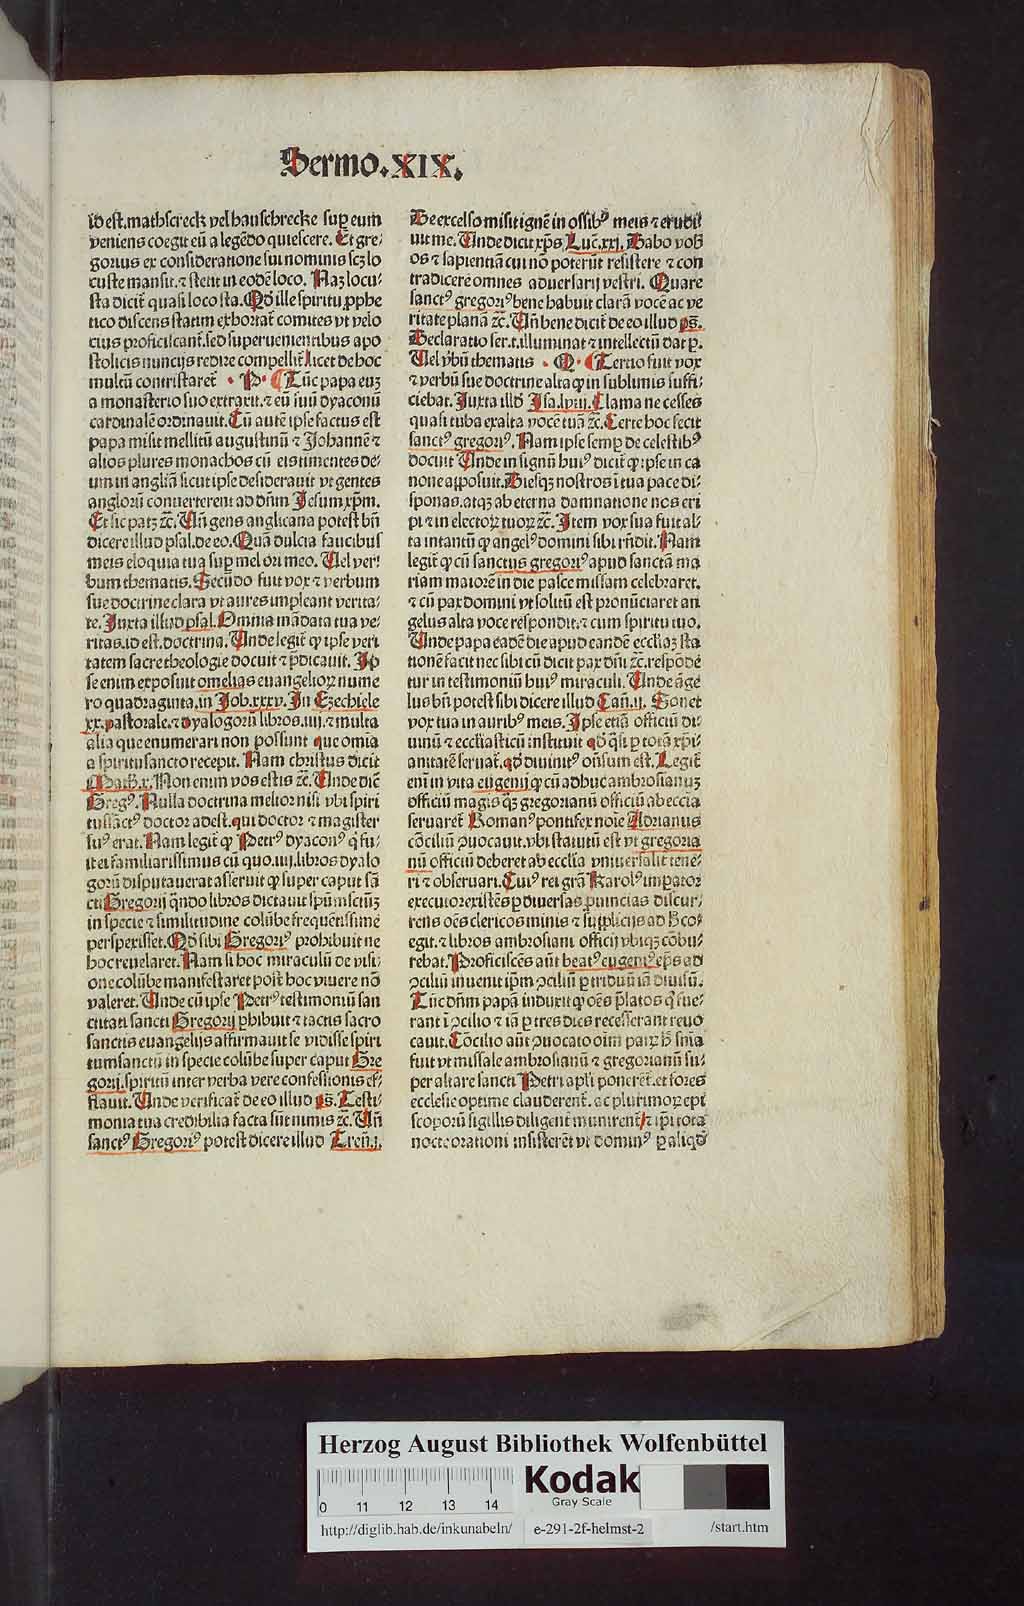 Sermo.XIX.
id est.mathscreck vel hauschrecke suꝑ eum
veniens coegit eū a legēdo quiescere. Et gre-
gorius ex consideratione sui nominis scꝫ lo
custe mansit.⁊ stetit in eodē loco. Naꝫ locu-
sta dicit̄ quasi loco sta. Qd̄ ille spiritu ꝓphe
tico discens statim exhortat̄ comites vt velo
cius proficiscant̄.sed superuenientibus apo
stolicis nuncijs redire compellit̄ licet de hoc
multū contristaret̄ . P. ¶ Tūc papa euꝫ
a monasterio suo extraxit.⁊ eū suū dyaconū
cardinalē ordinauit. Cū autē ipse factus est
papa misit mellitū augustinū ⁊ Johannē ⁊
alios plures monachos cū eis timentes de-
um in angliā sicut ipse desiderauit vt gentes
anglorū conuerterent ad dn̄m Jesum xp̄m.
Et sic patꝫ ⁊c̄. Vn̄ gens anglicana potest bn̄
dicere illud psal.de eo. Quā dulcia faucibus
meis eloquia tua suꝑ mel ori meo. Uel ver-
bum thematis. Secūdo fuit vox ⁊ verbum
sue doctrine clara vt aures impleant verita-
te. Juxta illud psal. Omnia mādata tua ve-
ritas.id est.doctrina. Unde legit̄ ꝙ ipse veri
tatem sacre theologie docuit ⁊ p̄dicauit. Jp
se enim exposuit omelias euangelioꝝ nume
ro quadraginta.in Job.xxxv. In Ezechiele
xx.pastorale.⁊ dyalogorū libros.iiij.⁊ multa
alia que enumerari non possunt que omīa
a spiritusancto recepit. Nam christus dicit
Math.x. Non enim vos estis ⁊c̄. Unde diē
Gregꝰ. Nulla doctrina melior nisi vbi spiri
tussanctꝰ doctor adest.qui doctor ⁊ magister
suꝰ erat. Nam legit̄ ꝙ Petrꝰ dyaconꝰ q̇ fu-
it ei familiarissimus cū quo.iiij.libros dyalo
gorū disputauerat asseruit ꝙ super caput sā
cti Gregorij qn̄do libros dictauit spūmsctūꝫ
in specie ⁊ similitudine colūbe frequētissime
perspexisset. Qd̄ sibi Gregoriꝰ prohibuit ne
hoc reuelaret. Nam si hoc miraculū de visi-
one colūbe manifestaret post hoc viuere nō
valeret. Unde cū ipse Petrꝰ testimoniū san
ctitati sancti Gregorij ꝑhibuit ⁊ tactis sacro
sanctis euangelijs affirmauit se vidisse spiri
tumsanctū in specie colūbe super caput Gre
gorij.spiritū inter verba vere confessionis ef-
flauit. Unde verificat̄ de eo illud ps̄. Testi-
monia tua credibilia facta sūt nimis ⁊c̄. Vn̄
sanctꝰ Gregoriꝰ potest dicere illud Tren̄.j.
De excelso misit ignē in ossibꝰ meis ⁊ erudi-
uit me. Unde dicit xp̄s Luc̄.xxj. Dabo vob̄
os ⁊ sapientiā cui nō poterūt resistere ⁊ con
tradicere omnes aduersarij vestri. Quare
sanctꝰ gregoriꝰ bene habuit clarā vocē ac ve
ritate planā ⁊c̄. Vn̄ bene dicit̄ de eo illud ps̄.
Declaratio ser.t.illuminat ⁊ intellectū dat p.
Uel ꝟbū thematis . Q. ¶ Tertio fuit vox
⁊ verbū sue doctrine alta ꝙ in sublimis suffi-
ciebat. Juxta illd̄ Isa.lviij. Clama ne cesses
quasi tuba exalta vocē tuā ⁊c̄. Certe hoc fecit
sanctꝰ gregoriꝰ. Nam ipse semꝑ de celestibꝰ
docuit Unde in signū huiꝰ dicit̄ ꝙ ipse in ca
none apposuit. Diesqꝫ nostros i tua pace di-
sponas.atqꝫ ab eterna damnatione nos eri
pi ⁊ in electoꝝ tuoꝝ ⁊c̄. Item vox sua fuit al-
ta intantū ꝙ angelꝰ domini sibi rn̄dit. Nam
legit̄ ꝙ cū sanctus gregoriꝰ apud sanctā ma
riam maiorē in die pasce missam celebraret.
⁊ cū pax domini vt solitū est pronūciaret an
gelus alta voce respondit.⁊ cum spiritu tuo.
Unde papa eadē die apud eandē eccliaꝫ sta
tionē facit nec sibi cū dicit pax dn̄i ⁊c̄.respōde
tur in testimoniū huiꝰ miraculi. Unde āge
lus bn̄ potest sibi dicere illud Can̄.ij. Sonet
vox tua in auribꝰ meis. Ipse etiā officiū di-
uinū ⁊ eccliasticū instituit qd̄ q̄si ꝑ totā xp̄i-
anitatē seruat̄.qd̄ diuinitꝰ on̄sum est. Legit̄
eni in vita eugenij ꝙ cū adhuc ambrosianuꝫ
officiū magis q̄ꝫ gregorianū officiū ab eccia
seruaret̄ Romanꝰ pontifex noīe Adrianus
cōciliū ꝯuocauit.vbi statutū est vt gregoria
nū officiū deberet ab ecclīa vniuersalit̄ tene-
ri ⁊ obseruari. Cuiꝰ rei grā Karolꝰ imꝑator
executor existēs ꝑ diuersas ꝓuincias discur-
rens oēs clericos minis ⁊ supplicijs ad h̄ co-
egit.⁊ libros ambrosiani officij vbiqꝫ cōbu-
rebat. Proficiscēs aūt beatꝰ eugeniꝰ ep̄s ad
ꝯciliū inuenit ip̄m ꝯciliū ꝑ triduū iā diuisū.
Tūc dn̄m papā induxit ꝙ oēs p̄latos q̇ fue-
rant i ꝯcilio ⁊ iā ꝑ tres dies recesserant reuo
cauit. Cōcilio aūt ꝯuocato oīm patꝝ h̄ snīa
fuit vt missale ambrosianū ⁊ gregorianū su-
per altare sancti Petri apl̄i ponerēt̄.et fores
ecclesie optime clauderent̄. ac plurimoꝝ epi
scoporū sigillis diligent̄ munirent̄ ⁊ ip̄i tota
nocte orationi insisterēt vt dominꝰ ꝑ aliqd̄
Herzog August Bibliothek Wolfenbüttel
0 11 12 13 14
Kodak
Gray Scale
http://diglib.hab.de/inkunabeln/ e-291-2f-helmst-2 /start.htm